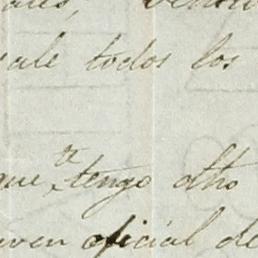 ale todos los
que te tengo dho
oven oficial de